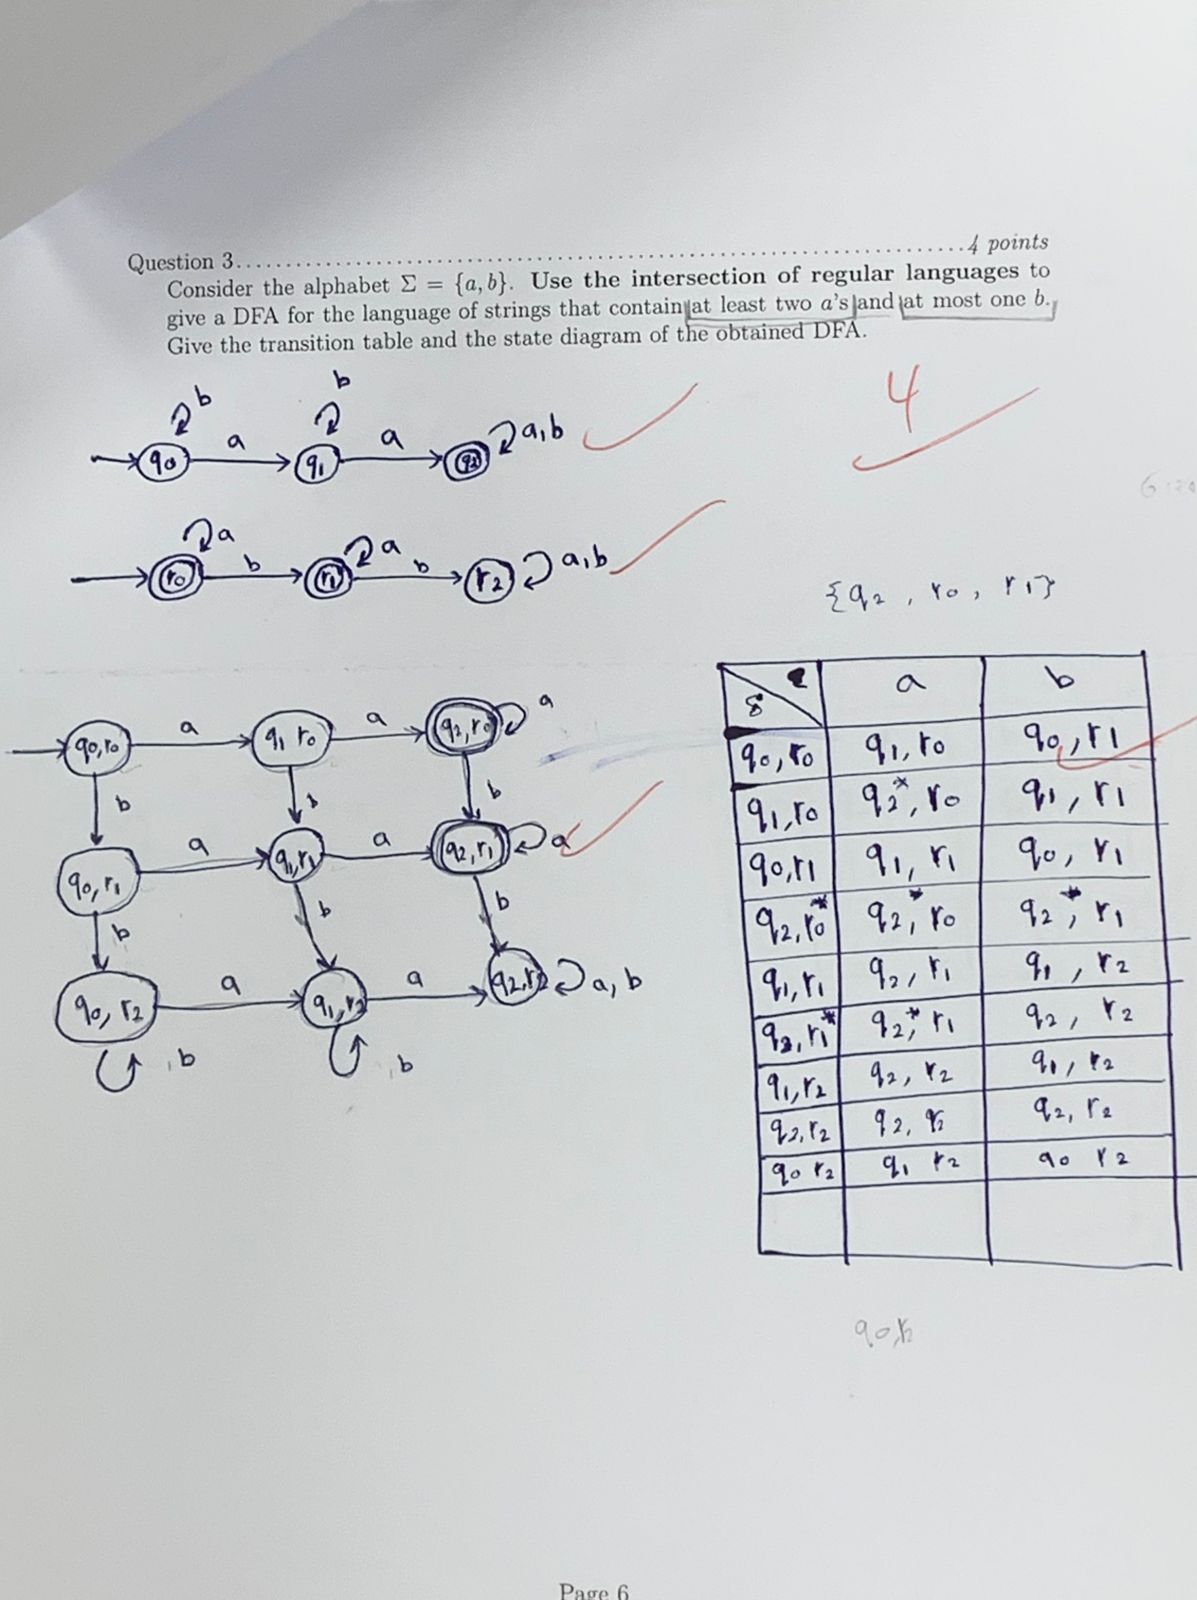 Question 3. . . . . . . . . . . . . . . . . . . . . . . . . . . . . . . . . . . . . . . . . . . . . . . . . . . . . . . . . . . . . 4 points
Consider the alphabet Σ = {a, b}. Use the intersection of regular languages to
give a DFA for the language of strings that contain at least two a's and at most one b.
Give the transition table and the state diagram of the obtained DFA.
b b
4
a a a,b
q0 q1 q2
a a
b b a,b
r0 r1 r2
{q2, r0, r1}
a a a
q0,r0 q1 r0 q2,r0
b b
a a a
q0,r1 q1,r1 q2,r1
b b b
a a
q0,r2 q1,r2 q2,r2 a,b
,b ,b
δ a b
q0,r0 q1,r0 q0,r1
q1,r0 q2*,r0 q1,r1
q0,r1 q1,r1 q0,r1
q2,r0* q2*,r0 q2*,r1
q1,r1 q2,r1 q1,r2
q2,r1* q2*,r1 q2,r2
q1,r2 q2,r2 q1,r2
q2,r2 q2, q2,r2
q0 r2 q1 r2 q0 r2
q0,r2
Page 6